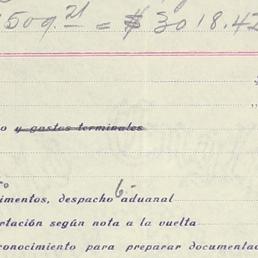 150q. 21 = $ 3018.42
o y gastos terminales
imentos, despacho 6- aduanal
rtación según nota a la vuelta
conocimiento para preparar documentac